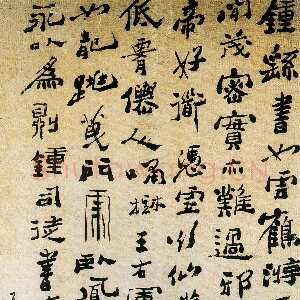 鍾繇書如雲鶴游
間茂密實亦難過邪
帝好衟憑虛欲仙
低霄僊人嘯樹王右軍
如龍跳天門虎臥鳳
永以為鍾司徒書